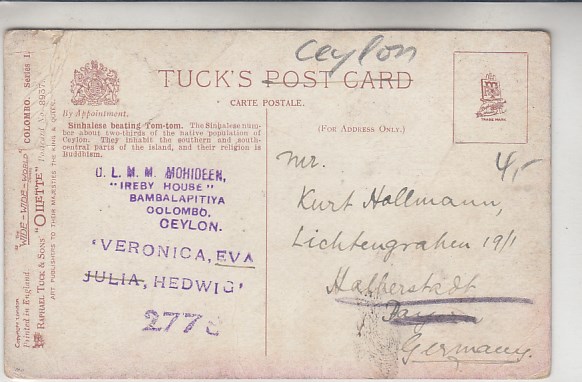 Ceylon
TUCK'S POST CARD
CARTE POSTALE.
By Appointment.
(FOR ADDRESS ONLY.)
TRADE MARK
Sinhalese beating Tom-tom. The Sinhalese num-
ber about two-thirds of the native population of
Ceylon. They inhabit the southern and south-
central parts of the island, and their religion is
Buddhism.
O. L. M. M. MOHIDEEN,
"IREBY HOUSE"
BAMBALAPITIYA
COLOMBO.
CEYLON.
'VERONICA, EVA
JULIA, HEDWIG'
Mr. 4,-
Kurt Hollmann,
Lichtengraben 19/1
Halberstadt
Germany.
"WIDE-WIDE-WORLD" COLOMBO. Series I.
Printed in England.
RAPHAEL TUCK & SONS' "OILETTE" Postcard No. 8957
ART PUBLISHERS TO THEIR MAJESTIES THE KING & QUEEN.